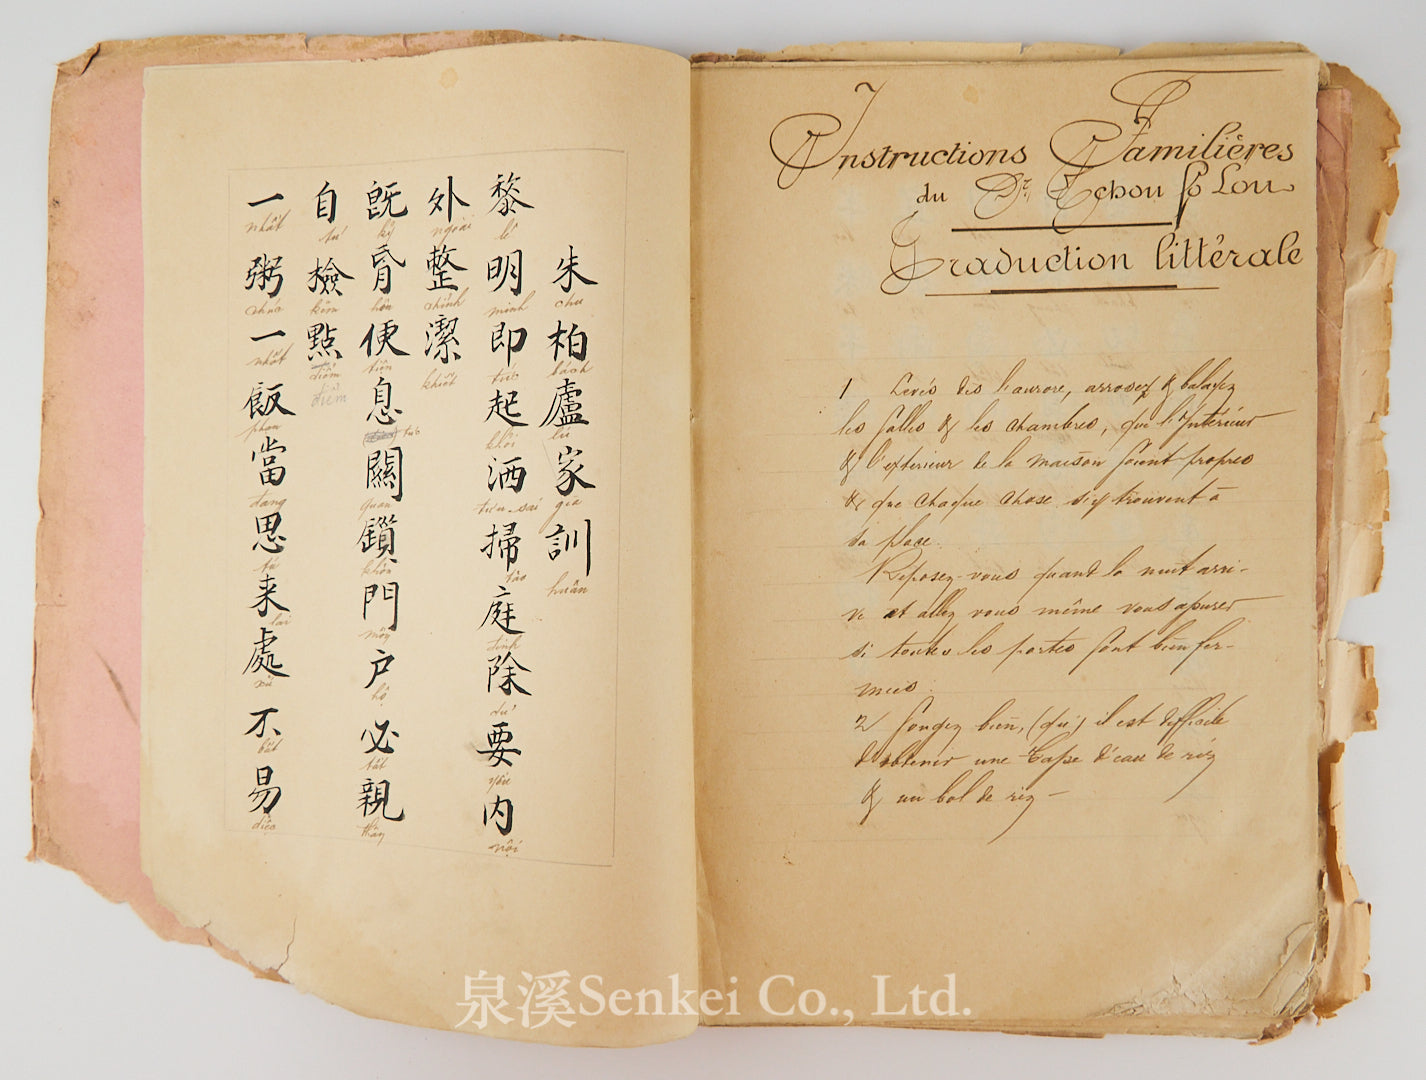 朱柏廬家訓
chu bách lư gia huấn
黎明即起洒掃庭除要内
lê minh tức khởi tiển-sái tảo đình dư yếu nội
外整潔
ngoài chỉnh khiết
旣昏便息關鎖門户必親
ký hôn tiện tức quan khôn môn hộ tất thân
自檢點
tự kiểm điểm
điểm
一粥一飯當思来處不易
nhất chúc nhất phạn đang tư lai xứ bất diệc
Instructions Familières
du Dr. Tchou Po Lou
Traduction littérale
1 Levés dès l'aurore, arrosez & balayez
les salles & les chambres, que l'Intérieur
& l'extérieur de la maison soient propres
& que chaque chose s'y trouvent à
sa place.
Reposez-vous quand la nuit arri-
ve et allez vous même vous assurer
si toutes les portes sont bien fer-
mées.
2 Songez bien, (qu') il est difficile
d'obtenir une Tasse d'eau de riz
& un bol de riz —
泉溪Senkei Co., Ltd.